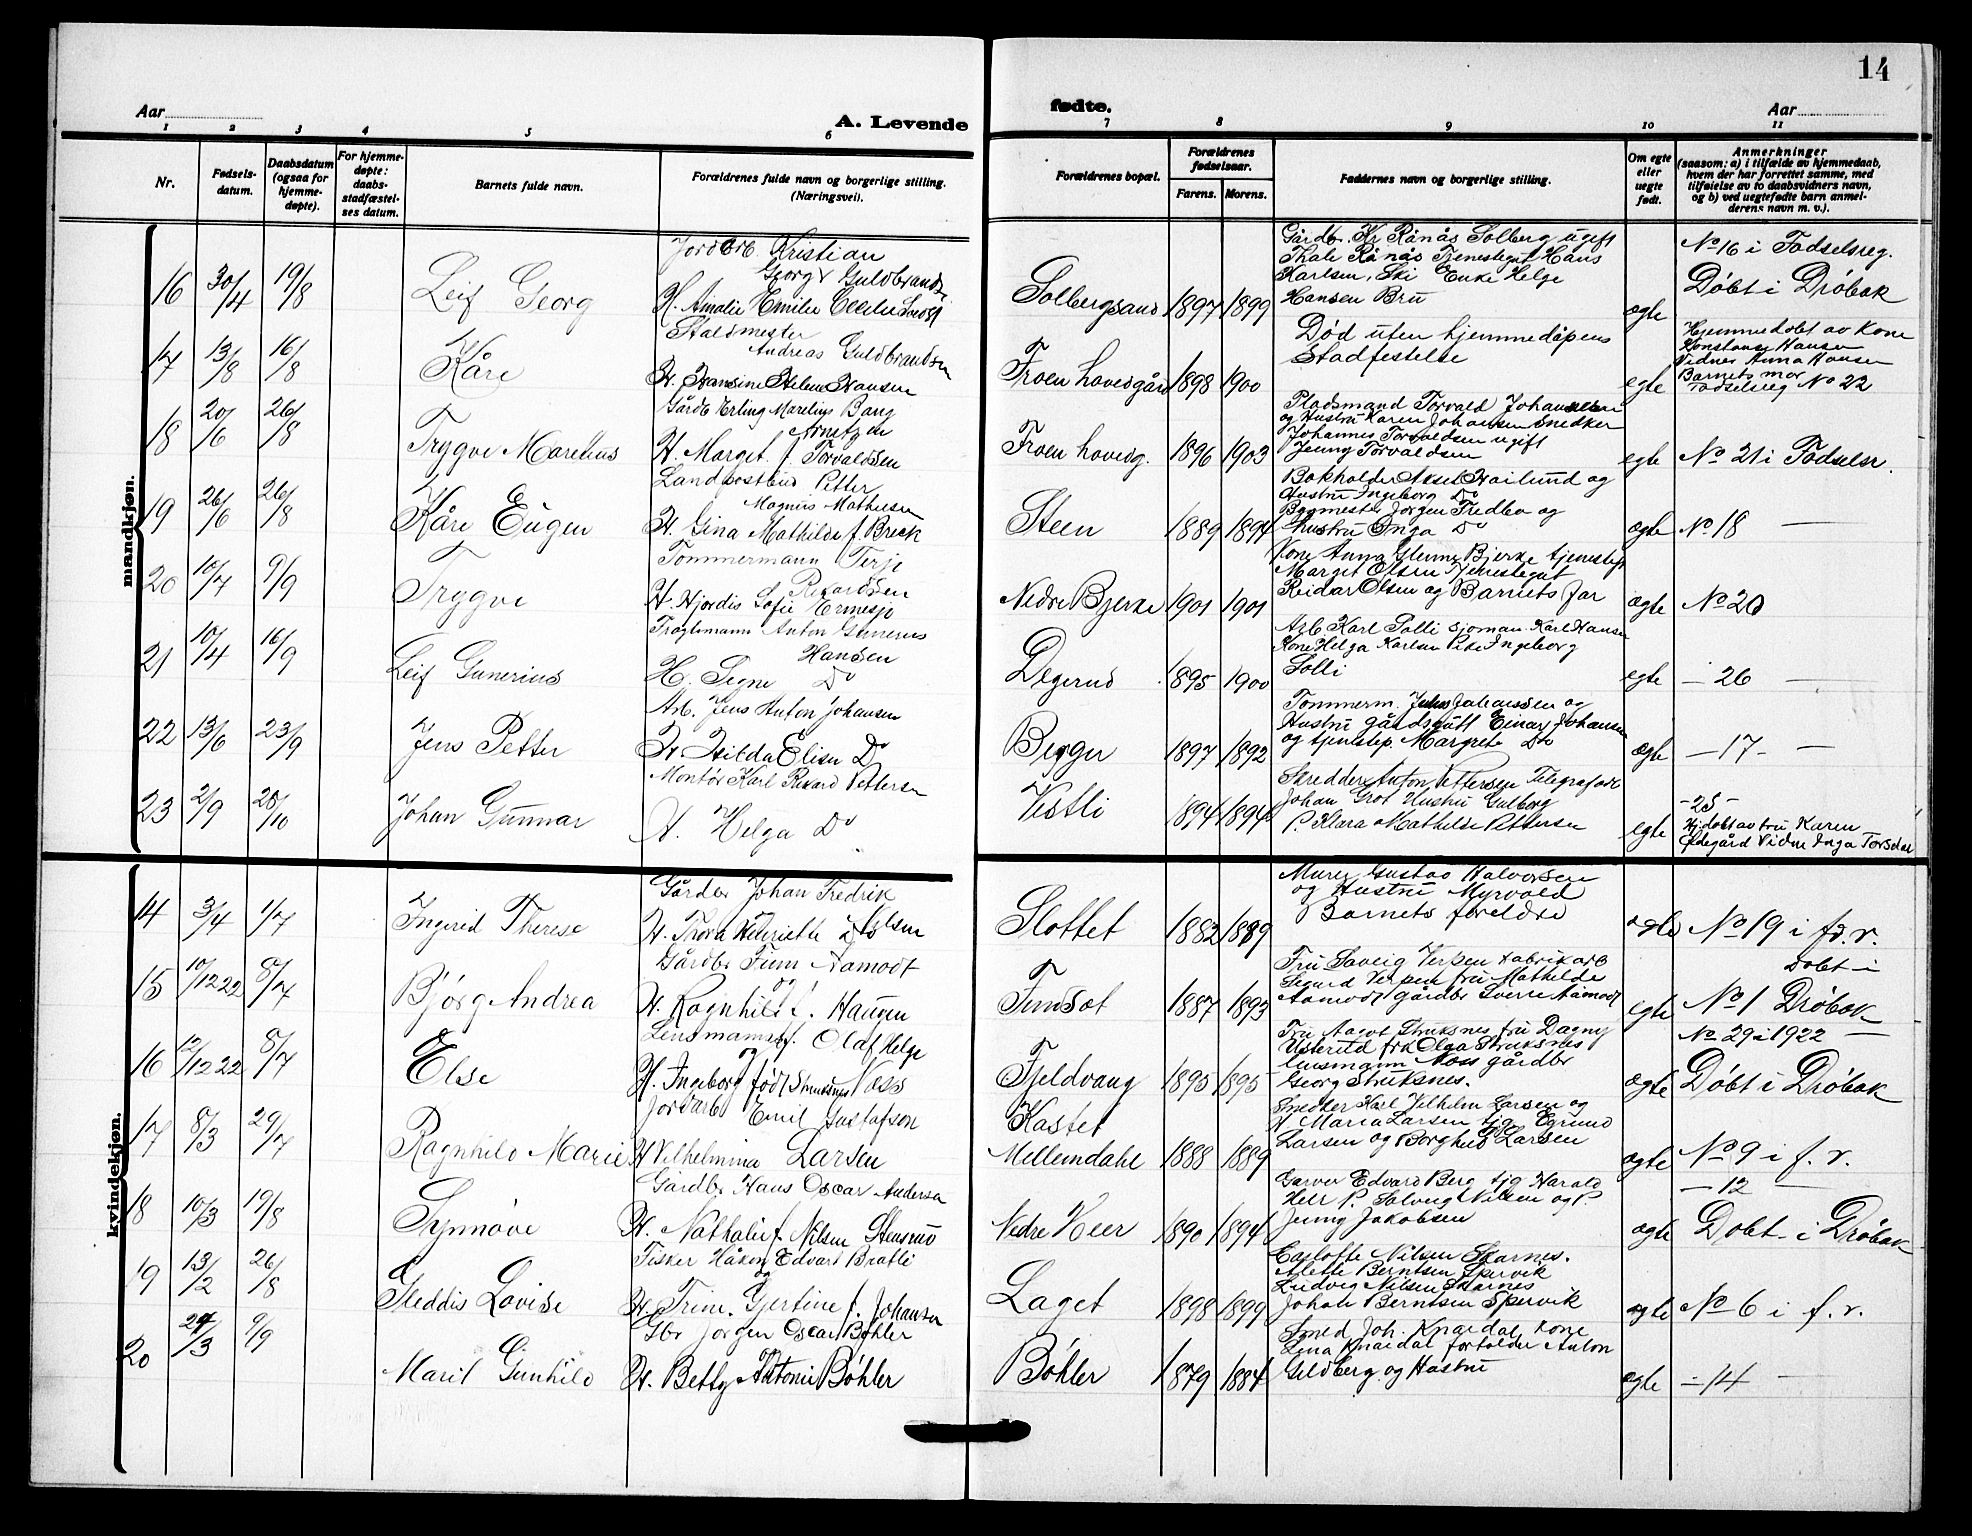 14
Aar
A. Levende
fødte.
Aar
1 2 3 4 5 6 7 8 9 10 11
Nr.
Fødsels-
datum.
Daabsdatum
(ogsaa for
hjemme-
døpte).
For hjemme-
døpte:
daabs-
stadfæstel-
ses datum.
Barnets fulde navn.
Forældrenes fulde navn og borgerlige stilling.
(Næringsvei).
Forældrenes bopæl.
Forældrenes
fødselsaar.
Farens. Morens.
Faddernes navn og borgerlige stilling.
Om egte
eller
uegte
født.
Anmerkninger
(saasom: a) i tilfælde av hjemmedaab,
hvem der har forrettet samme, med
tilføielse av to daabsvidners navn,
og b) ved uegtefødte barn anmel-
derens navn m. v.).
mandkjøn.
16 30/4 19/8 Leif Georg
Jordbrb. Kristian
Georg Guldbrands
H. Amalie Emilie
Solbergsand 1897 1899
Gårdbr. Kr Rånås Solberg ugift
Thale Rånås Tjenestegut Hans
Karlsen, Ski Enke Helge
Hansen Bru
egte
No 16 i Fødselsreg.
Døbt i Drøbak
17 13/8 16/8 Kåre
Staldmester
Andreas Guldbrandsen
H. Hansine Helene Hansen
Froen hovedgård 1898 1900
Død uten hjemmedåpens
Stadfestelse
egte
Hjemmedøbt av Kone
Konstanse Hansen
Vidner Anna Hansen
Barnets mor
Fødselsreg No 22
18 20/6 26/8 Trygve Marelius
Gårdb Erling Marelius Bang
Arntzen
H. Marget f. Torvaldsen
Froen hovedg. 1896 1903
Pladsmand Torvald Johansen
og Hustru Karen Johansen Snedker
Johannes Torvaldsen ugift
Jenny Torvaldsen
egte No 21 i Fødselsr.
19 26/6 26/8 Kåre Eugen
Landpostbud Petter
Magnus Mathisen
H. Gina Mathilde f. Breck
Steen 1889 1894
Bokholder Aksel Frailund og
Hustru Ingeborg Do
Baomester Jørgen Fredbo og
Hustru Inga Do
egte No 18 —
20 10/7 9/9 Trygve
Tømmermann Terje
Rikardsen
H. Hjordis Sofie Ermesjø
Nedre Bjerke 1901 1901
Kone Anna Glenne Bjerke tjenestep
Marget Olsen Tjenestegut
Reidar Olsen og Barnets far
egte No 20
21 10/4 16/9 Leif Gunerius
Anton Gunerius
Hansen
H. Signe Do
Degerud 1895 1900
Arb Karl Solli sjoman Karl Hansen
Kone Helga Karlsen Pike Ingeborg
Solli
egte — 26 —
22 13/6 23/9 Jens Petter
Arb. Jens Anton Johansen
H. Hilda Elise Do
Bygger 1897 1892
Tømmerm. Julius Johanssen og
Hustru gårdsgutt Einar Johansen
og tjenstep. Margrete Do
egte — 17 — —
23 2/9 28/10 Johan Gunnar
Montør Karl Rikard Pettersen
H. Helga Do
Vestli 1894 1894
Skredder Anton Pettersen Telegrafarb
Johan Grot Hustru Gulborg
P. Klara Mathilde Pettersen
egte
- 25 -
Hjdøbt av fru Karen
Ødegård Vidne Inga Torsdal
kvindekjøn.
14 3/4 1/7 Ingrid Therese
Gårdbr Johan Fredrik
Olsen
H. Thora Henriette
Slottet 1882 1889
Murer Gustav Halvorsen
og Hustru Myrvold
Barnets foreldre
egte No 19 i fd. r.
15 10/12 22 8/7 Bjørg Andrea
Gårdbr Finn Aamodt
og
H. Ragnhild f. Haugen
Fundsot 1887 1893
Fru Solveig Verpen fabrikarb
Sigurd Verpen fru Mathilde
Aamodt gårdbr Sverre Aamodt
egte
Døbt i
No 1 Drøbak
16 12/12 22 8/7 Else
Lensmannsf. Olaf Helge
og
H. Ingeborg født Struksnes Voss
Fjeldvang 1895 1895
Fru Aagot Struksnes fru Dagny
fru Olga Struksnes
lensmann Voss gårdbr
Georg Struksnes.
egte
No 29 i 1922 —
Døbt i Drøbak
17 8/3 29/7 Ragnhild Marie
Jordarb Emil Gustafson
H Vilhelmina Larsen
Kastet
Mellemdahl 1888 1889
Snedker Karl Vilhelm Larsen og
H Maria Larsen tjg Egrund
Larsen og Borghild Larsen
egte No 9 i f. r.
18 10/3 19/8 Synnøve
Gårdbr Hans Oscar Andersen
H. Nathalie f. Nilsen Stensrud
Nedre Heer 1890 1894
Garver Edvard Berg tjg Harald
Heer P. Solveig Nilsen og P.
Jenny Jakobsen
egte
— 12 —
Døbt i Drøbak
19 13/2 26/8 Gleddis Lovise
Fisker Håkon Edvart Bratli
og
H. Trine Gjertine f. Johansen
Laget 1898 1899
Caslotte Nilsen Skarnes.
Alette Berntsen Spervik
Ludvig Nilsen Skarnes
Johale Berntsen Spervik
egte No 6 i f. r.
20 24/3 9/9 Marit Gunhild
Gbr Jørgen Oscar Bøhler
og
H. Betty Antonie Bøhler
Bøhler 1879 1884
Smed Joh. Knardal kone
Lina Knardal forholder Anton
Gildberg og Hustru
egte — 14 —